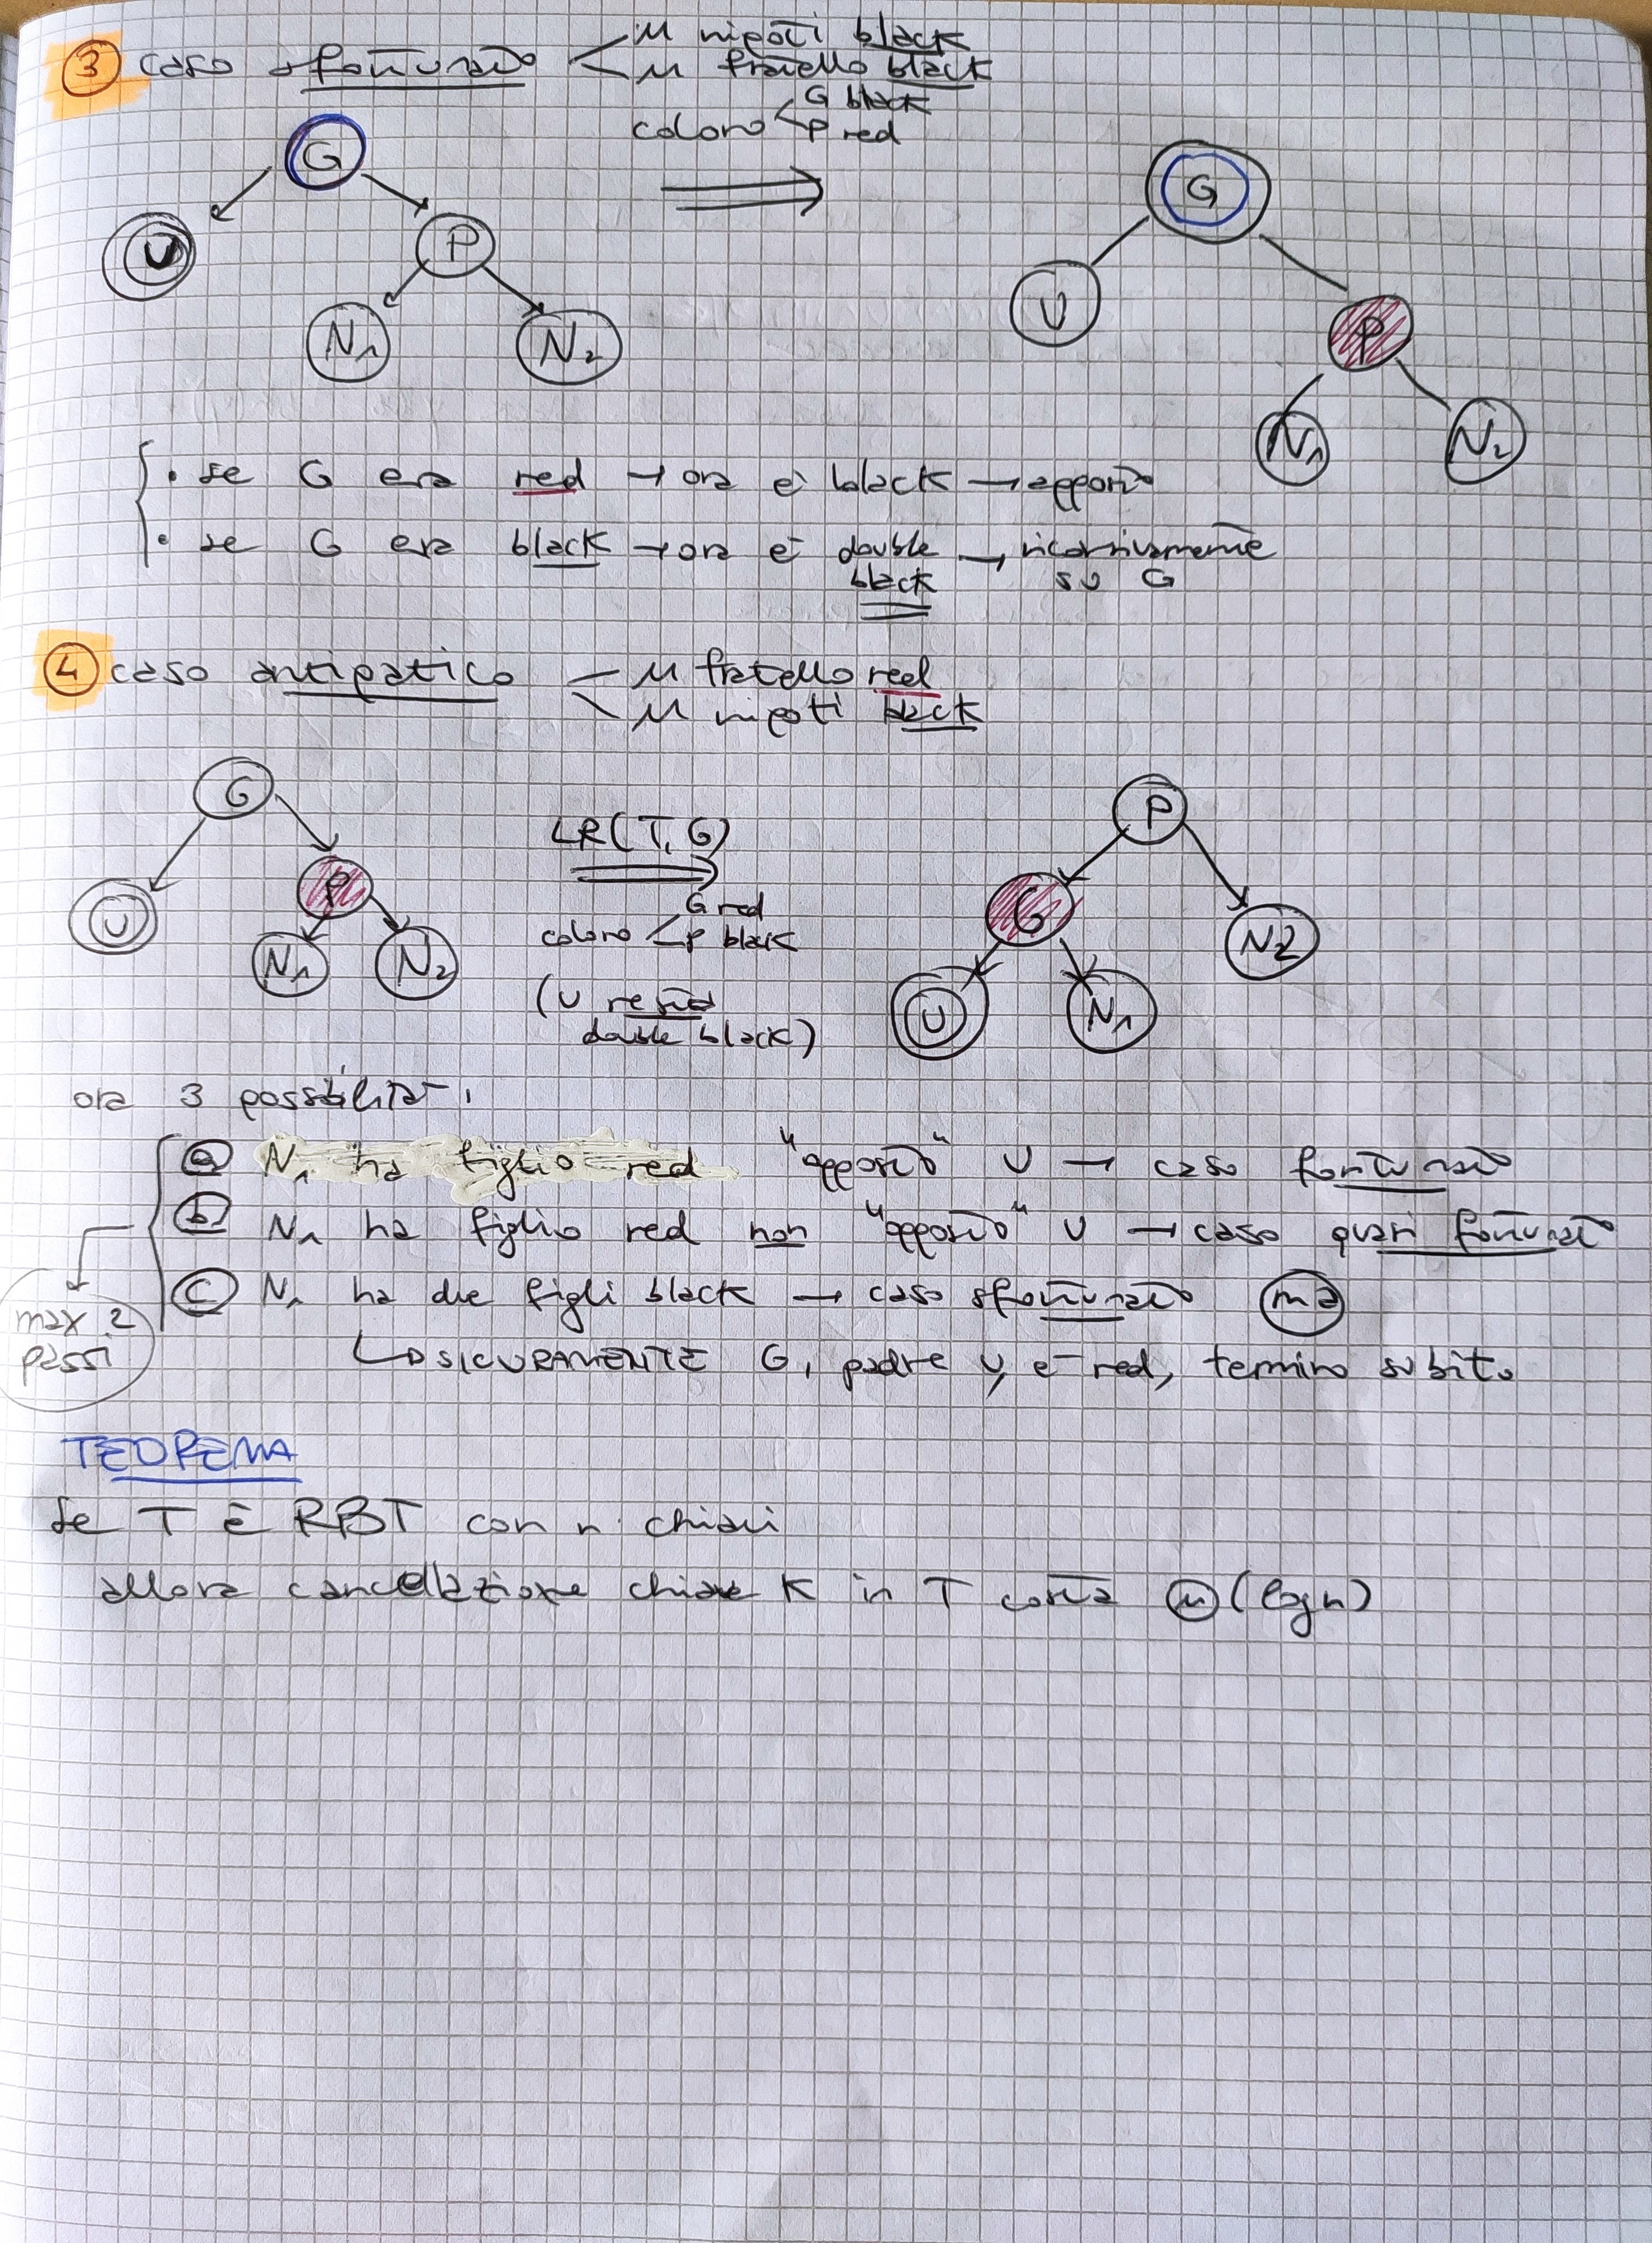 3 caso sfortunato < U nipoti black
U fratello black
coloro < G black
P red
G G
U P U P
N1 N2 N1 N2
• se G era red → ora è black → apposto
• se G era black → ora è double black → ricorsivamente su G
4 caso antipatico - U fratello red
\ U nipoti black
G P
U P G N2
N1 N2 U N1
LR(T,G)
coloro < G red
P black
(U resta
double black)
ora 3 possibilità:
a N1 ha figlio red "opposto" U → caso fortunato
b N1 ha figlio red non "opposto" U → caso quasi fortunato
c N1 ha due figli black → caso sfortunato ma
max 2
passi
↳ SICURAMENTE G, padre U, è red, termino subito
TEOREMA
Se T È RBT con n chiavi
allora cancellazione chiave K in T costa Θ(log n)